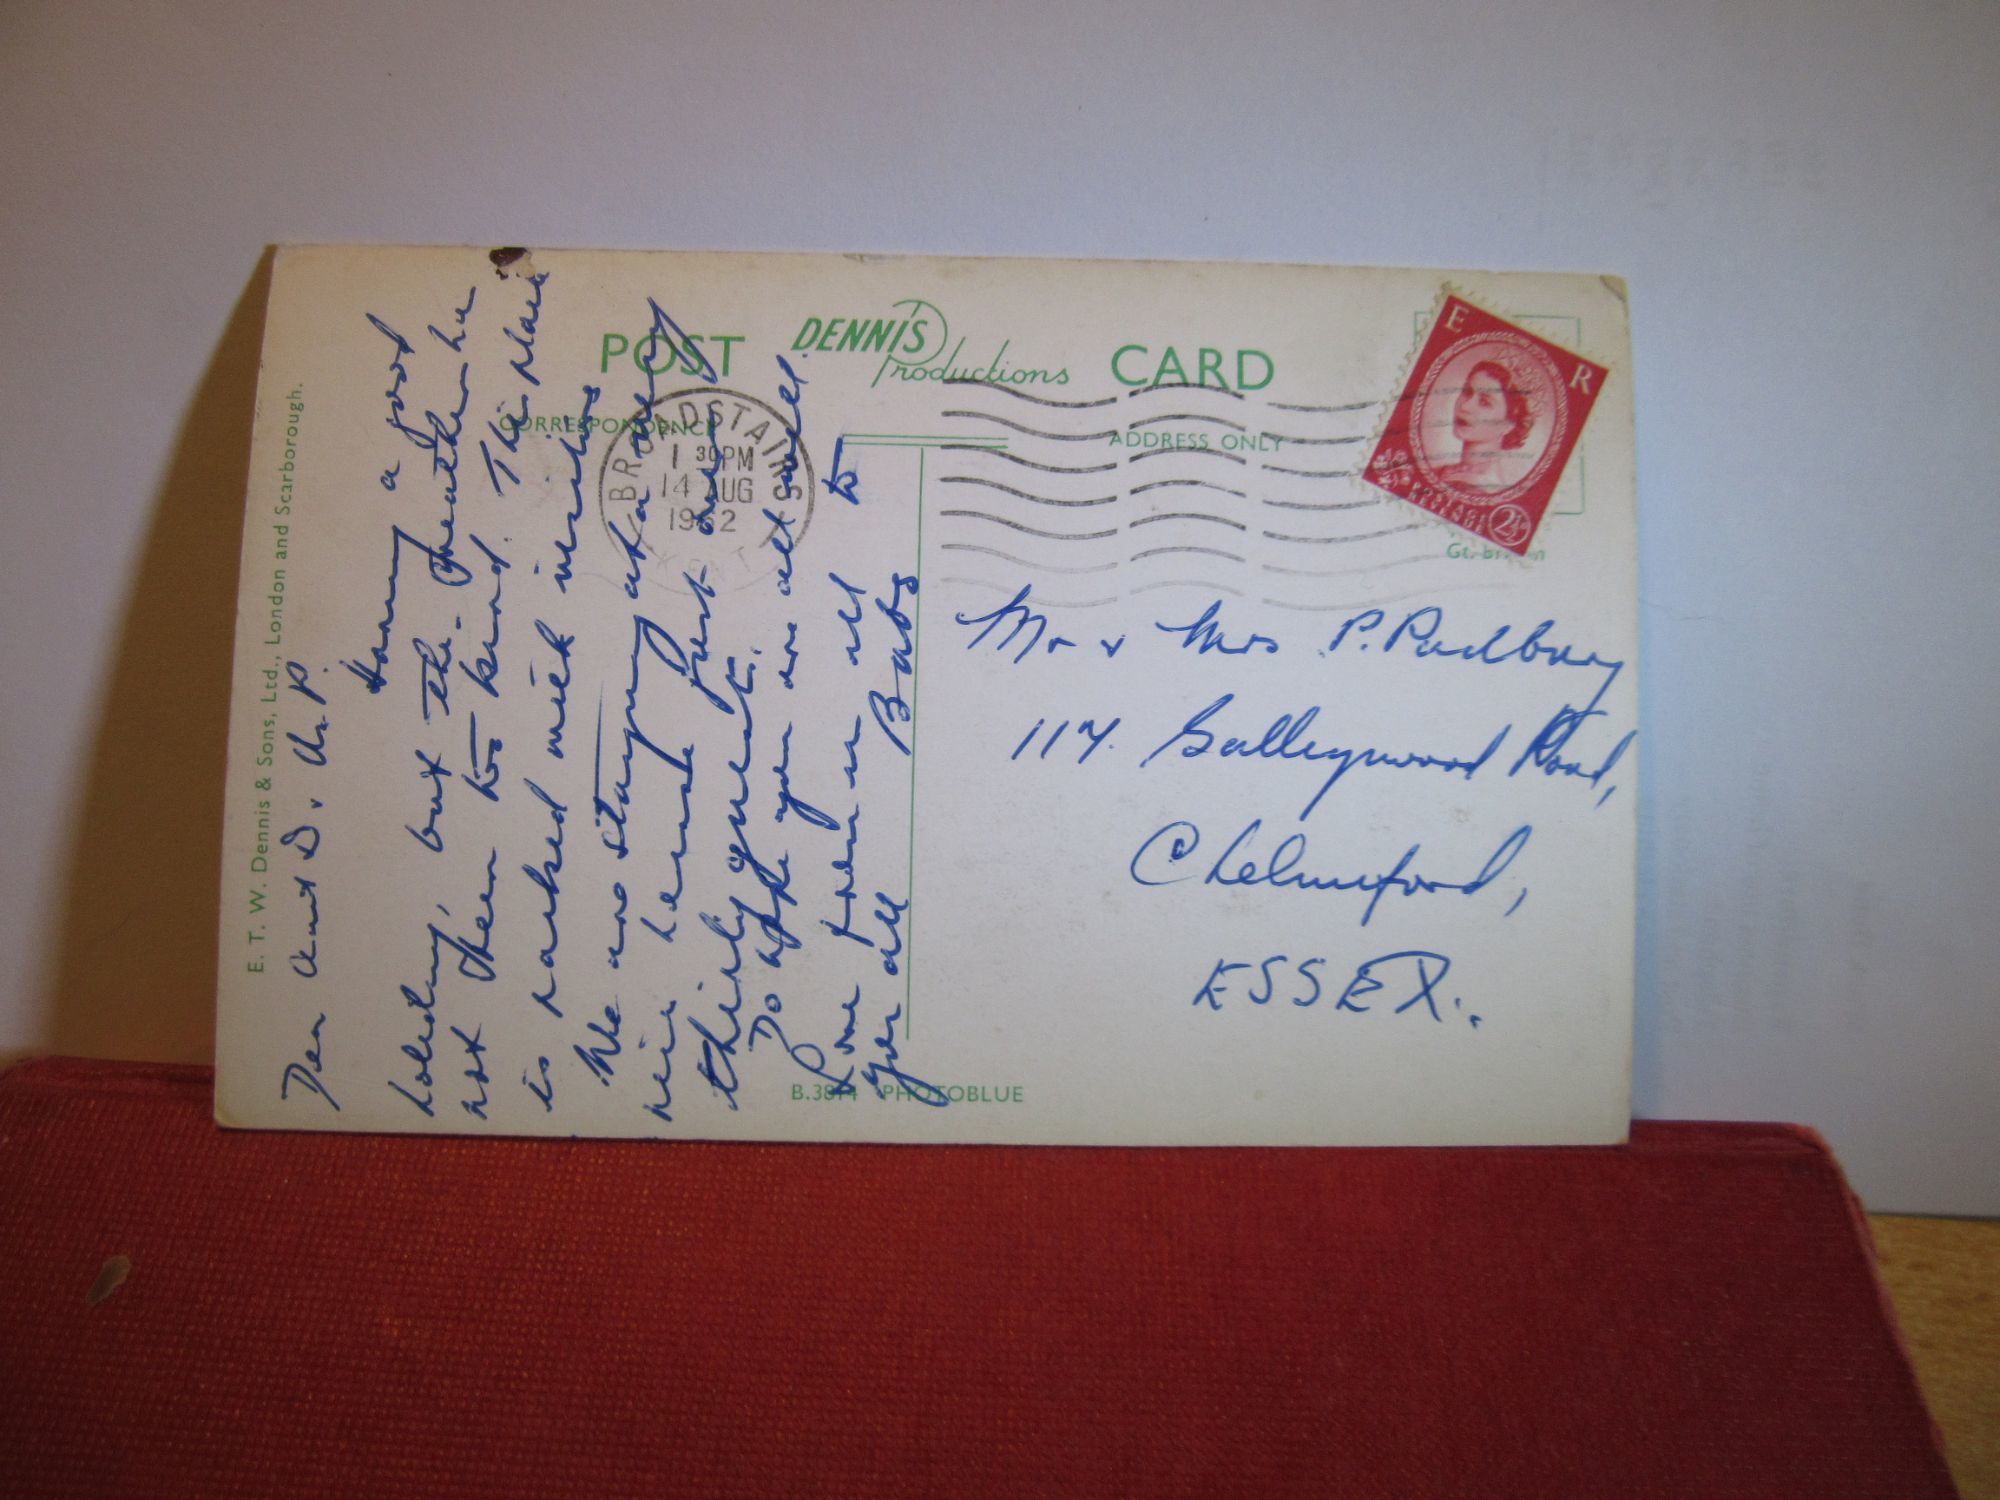 E. T. W. Dennis & Sons, Ltd., London and Scarborough.
POST DENNIS Productions CARD
CORRESPONDENCE
ADDRESS ONLY
BROADSTAIRS
1 30PM
14 AUG
1962
KENT
E R
POSTAGE
REVENUE
2½D
Gt. Britain
Dear Aunt D. & U. P.
Having a good
holiday, but the weather has
not been too kind. This place
is packed with visitors
We are staying at a very
nice house just
thirty guests.
Do hope you are all well.
Love from us all to
you all Babs
Mr & Mrs P. Padbury
117. Galleywood Road,
Chelmsford,
ESSEX.
B.3814 PHOTOBLUE